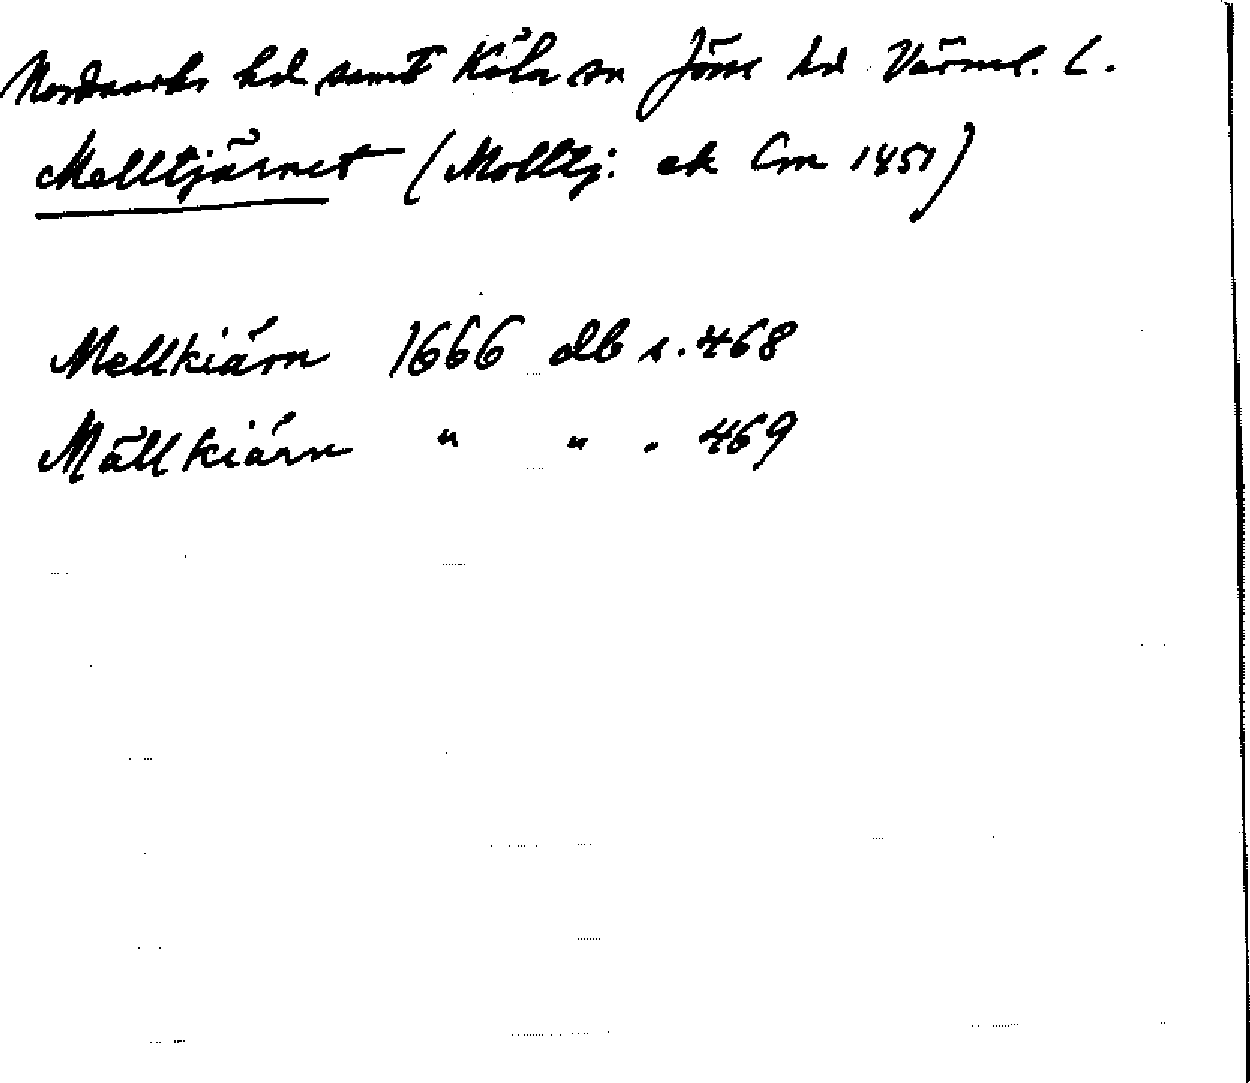 Nordmarks hd samt Köla sn Jösse hd Värml. l.
Melltjärnet (Molltj. ek Cm 1451)
Mellkiärn 1666 db s. 468
Mällkiärn " " . 469